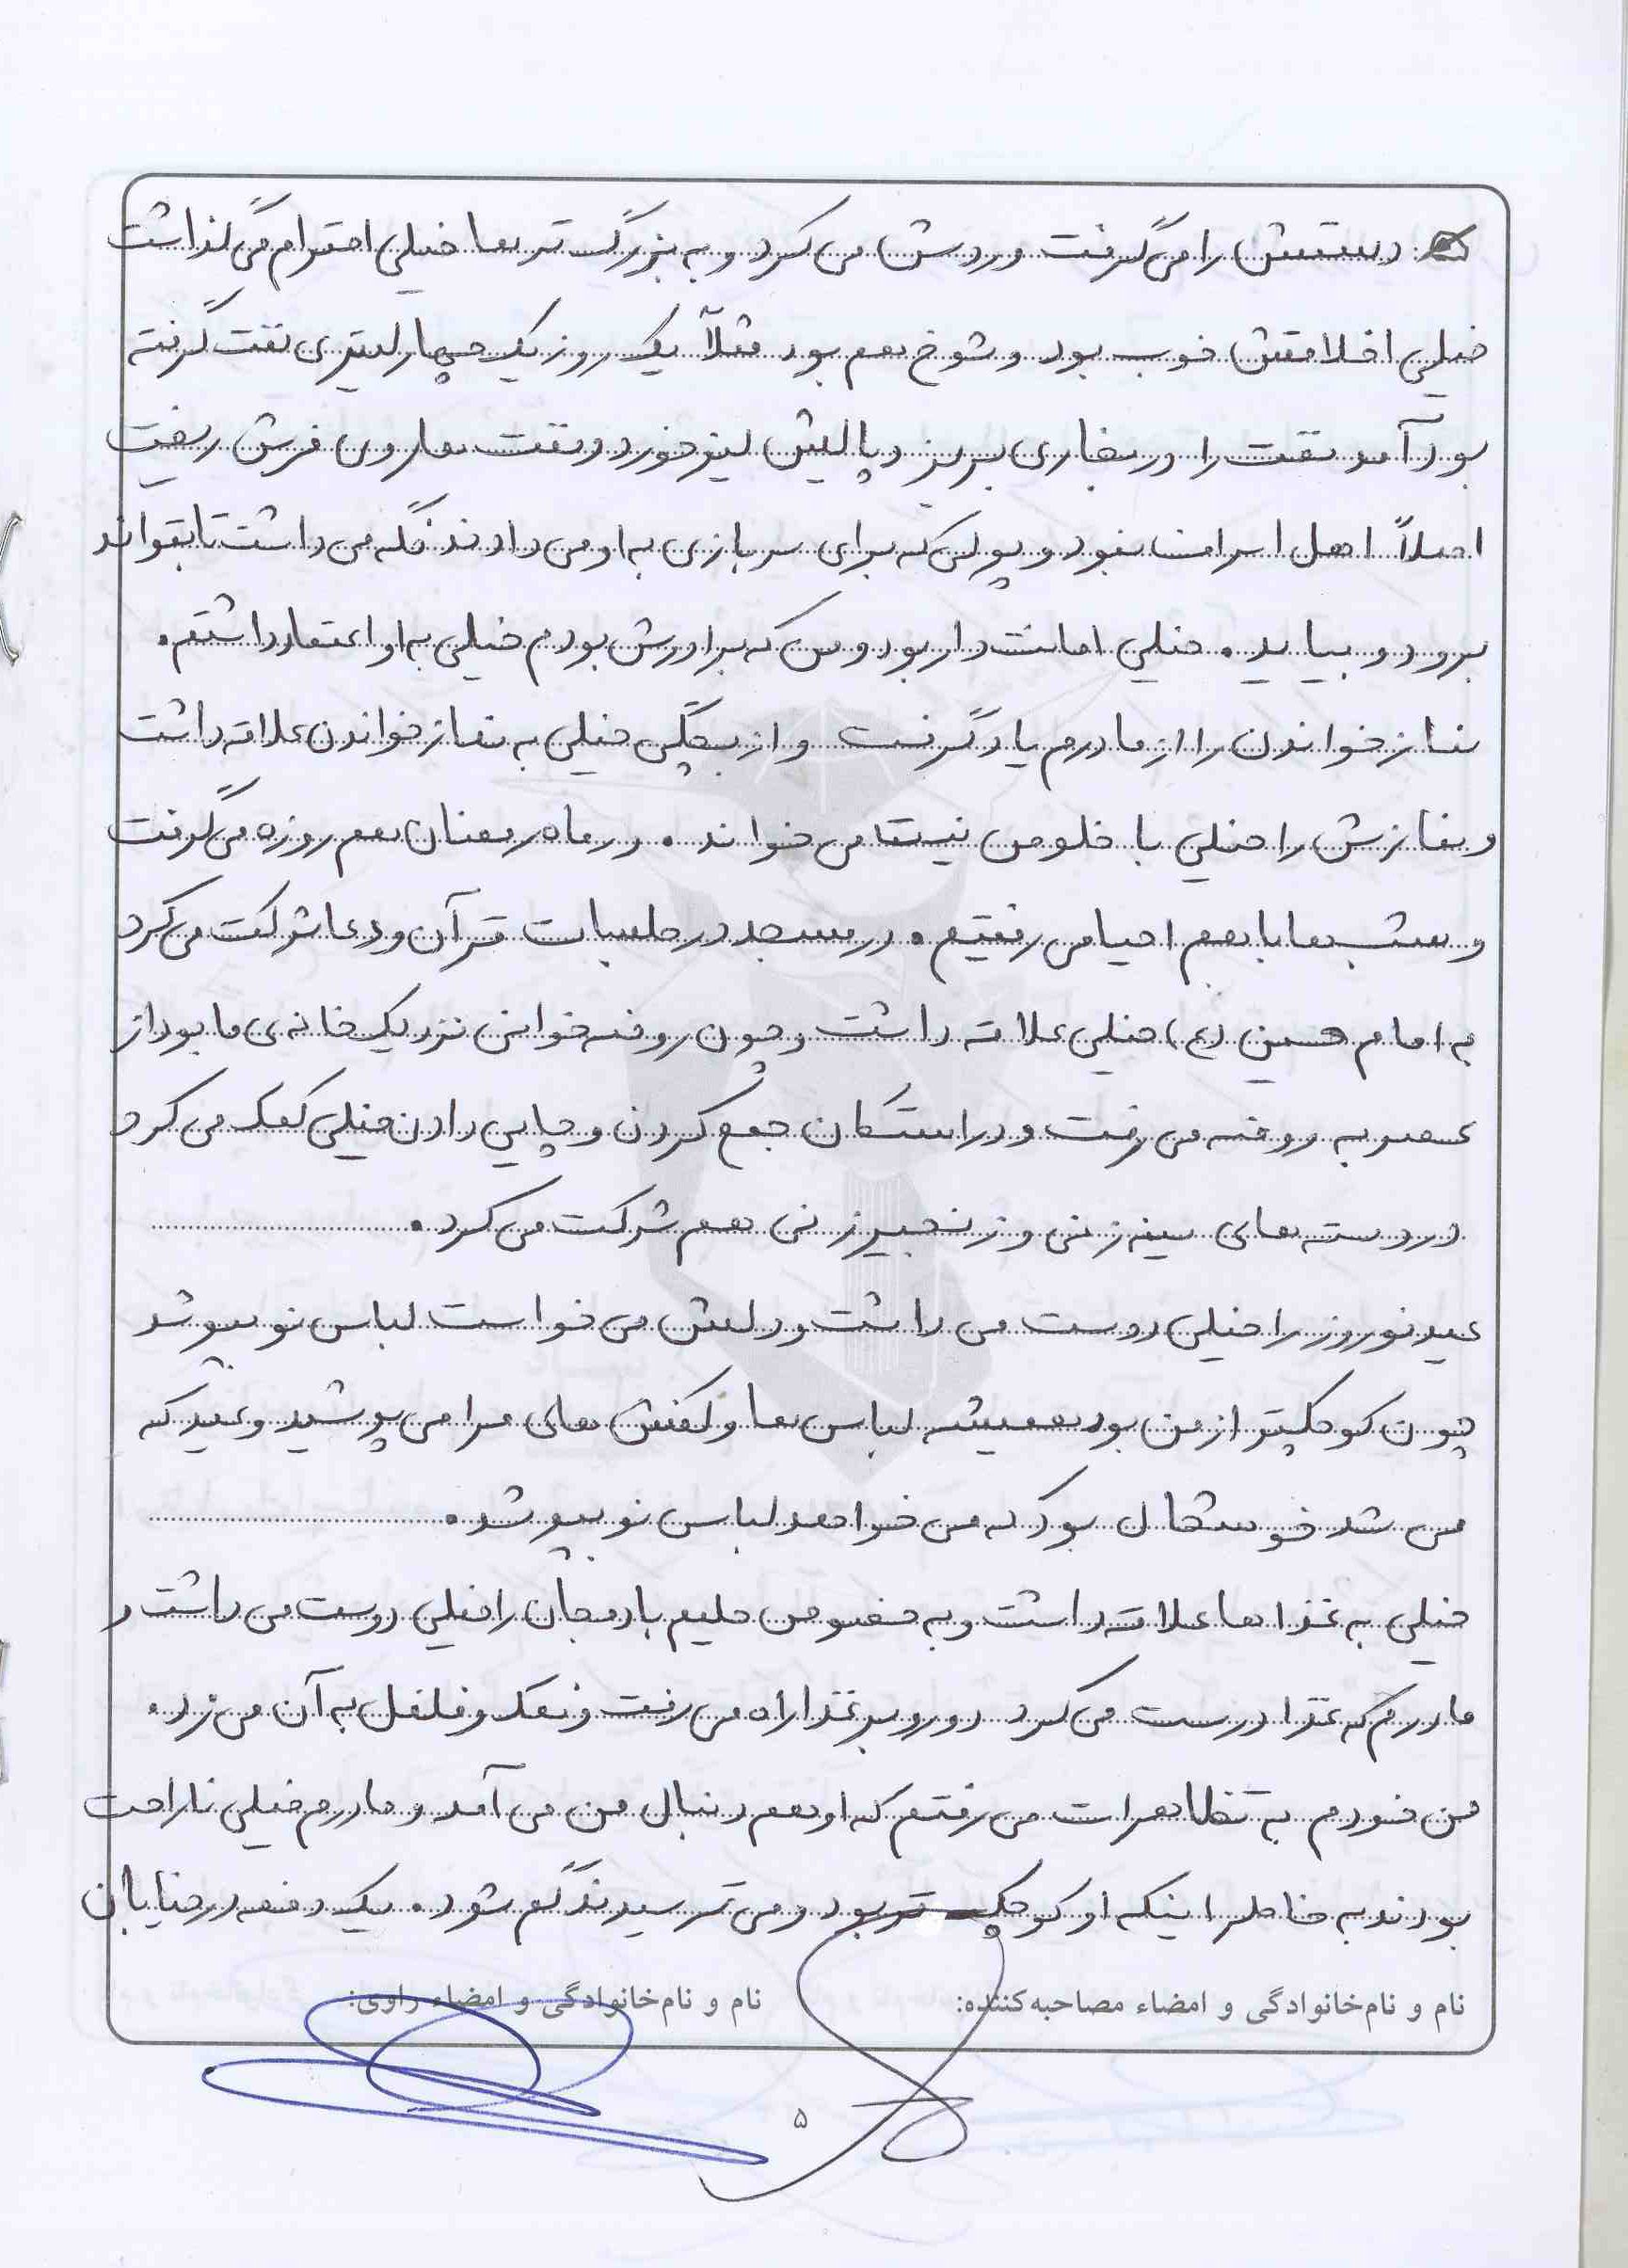 دستش را می گرفت و ردش می کرد و به بزرگ تر ها خیلی احترام می گذاشت
خیلی اخلاقش خوب بود و شوخ هم بود مثلاً یک روز یک چهار لیتری نفت گرفته
بود آمد نفت را در بخاری بریزد پایش لیز خورد و نفت ها روی فرش ریخت
اصلاً اهل اسراف نبود و پولی که برای سربازی به او می دادند نگه می داشت تا بتواند
برود و بیاید. خیلی امانت دار بود و من که برادرش بودم خیلی به او اعتماد داشتم.
نماز خواندن را از مادرم یاد گرفت و از بچگی خیلی به نماز خواندن علاقه داشت
و نمازش را خیلی با خلوص نیت می خواند. در ماه رمضان هم روزه می گرفت
و شب ها با هم احیا می رفتیم. در مسجد در جلسات قرآن و دعا شرکت می کرد
به امام حسین (ع) خیلی علاقه داشت و چون روضه خوانی نزدیک خانه ی ما بود از
عصر به روضه می رفت و در استکان جمع کردن و چایی دادن خیلی کمک می کرد
در دسته های سینه زنی و زنجیر زنی هم شرکت می کرد.
عید نوروز را خیلی دوست می داشت و دلش می خواست لباس نو بپوشد
چون کوچکتر از من بود همیشه لباس ها و کفش های مرا می پوشید و عید که
می شد خوشحال بود که می خواهد لباس نو بپوشد.
خیلی به غذا ها علاقه داشت و به خصوص حلیم بادمجان را خیلی دوست می داشت و
مادرم که غذا درست می کرد دور و بر غذا راه می رفت و نمک و فلفل به آن می زد.
من خودم به تظاهرات می رفتم که او هم دنبال من می آمد و مادرم خیلی ناراحت
بودند به خاطر اینکه او کوچک تر بود و می ترسیدند گم شود. یک دفعه در خیابان
نام و نام‌خانوادگی و امضاء مصاحبه‌کننده: نام و نام‌خانوادگی و امضاء راوی:
۵